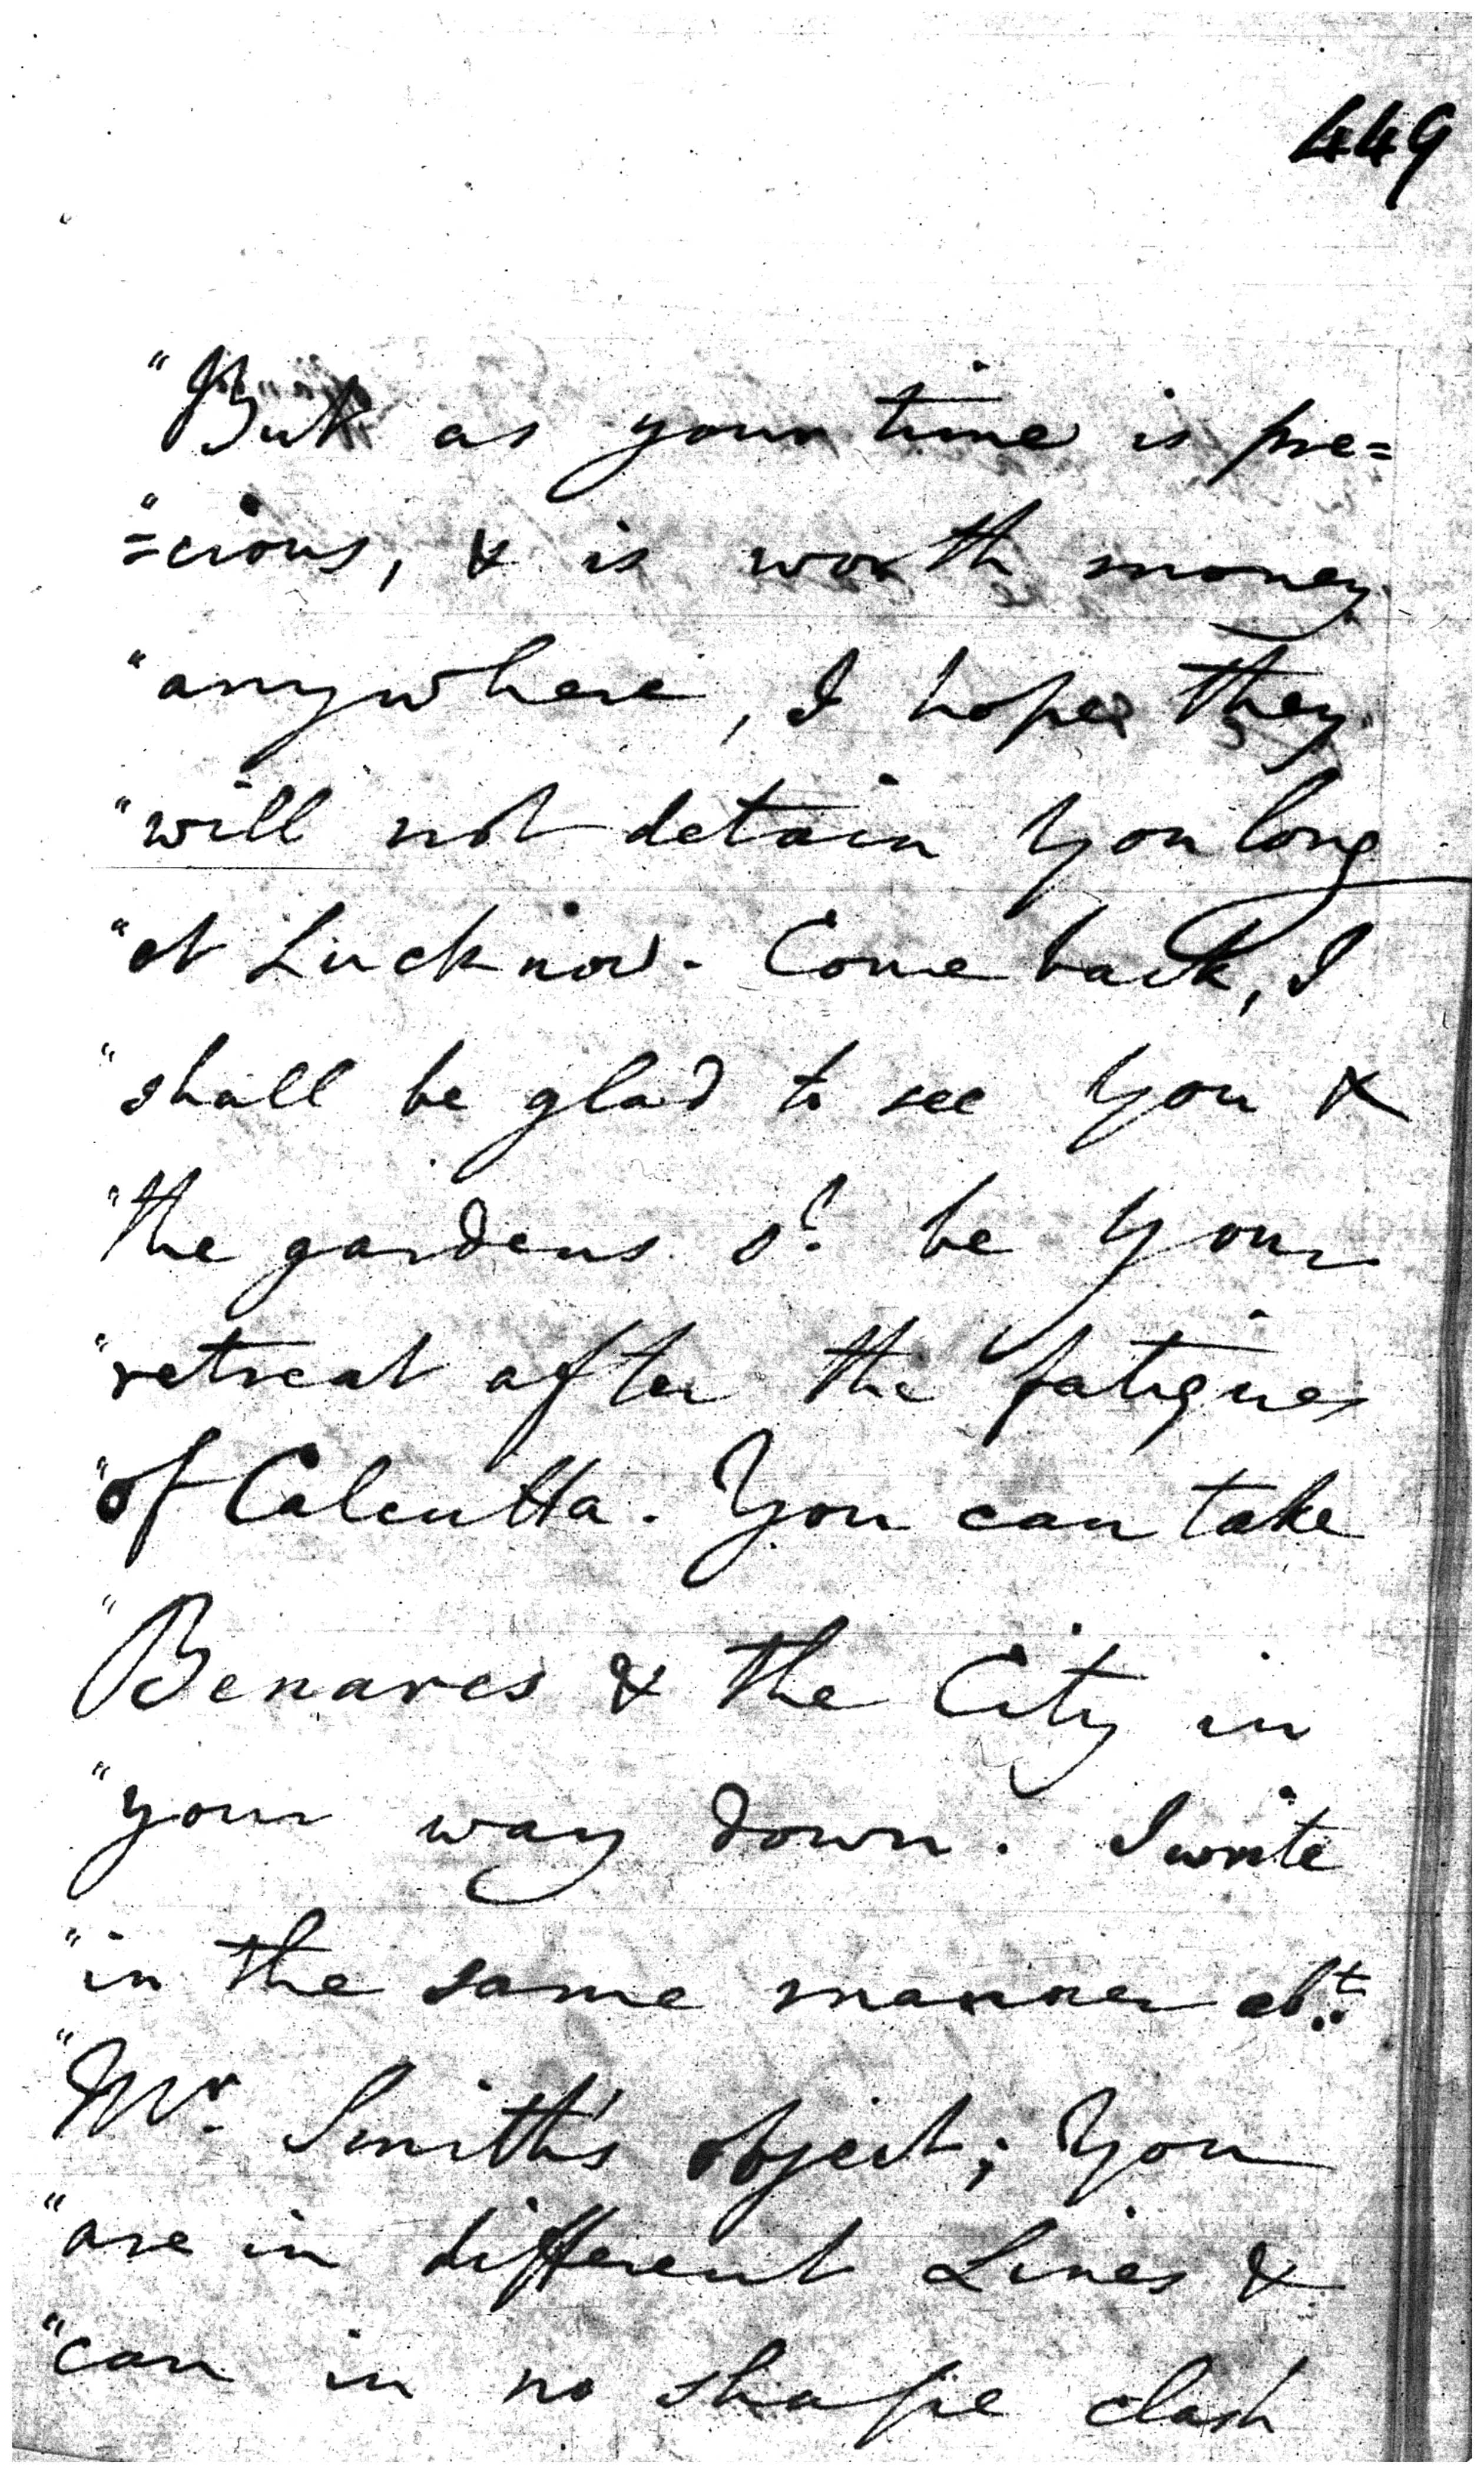 449
"But as your time is pre=
"=cious, & is worth money
"anywhere, I hope they
"will not detain you long
"at Lucknow. Come back, I
"shall be glad to see you &
"the gardens sd. be your
"retreat after the fatigues
"of Calcutta. You can take
"Benares & the City in
"your way down. I write
"in the same manner abt.
"Mr. Smith's object; you
"are in different Lines &
"can in no shape clash